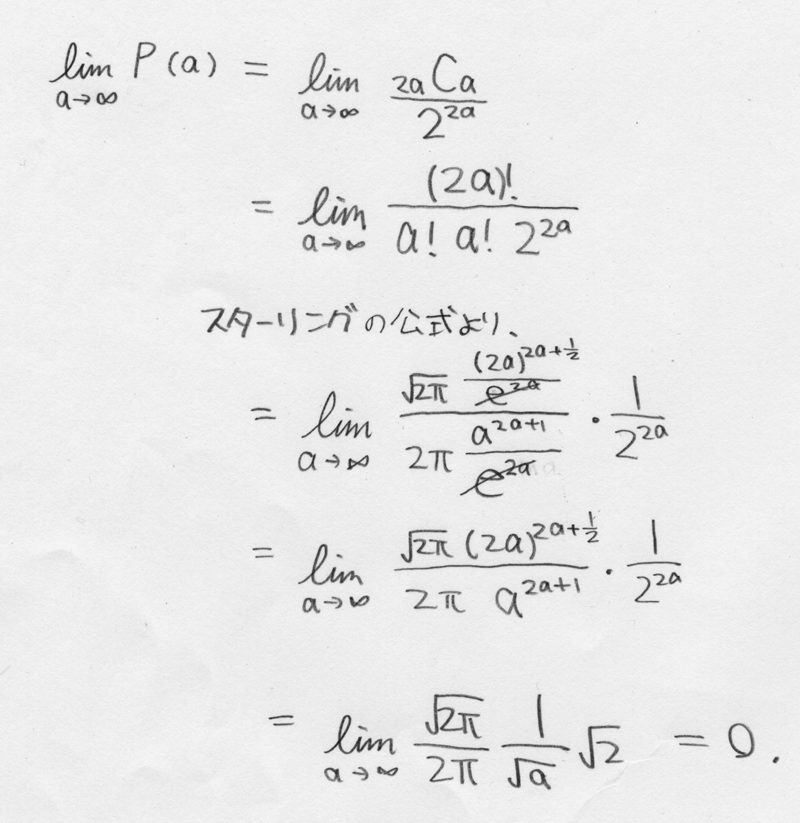 lim_{a→∞} P(a) = lim_{a→∞} {}_{2a}C_a / 2^{2a}
= lim_{a→∞} (2a)! / (a! a! 2^{2a})
スターリングの公式より、
= lim_{a→∞} (√2π (2a)^{2a+1/2} / e^{2a}) / (2π a^{2a+1} / e^{2a}) · 1 / 2^{2a}
= lim_{a→∞} (√2π (2a)^{2a+1/2}) / (2π a^{2a+1}) · 1 / 2^{2a}
= lim_{a→∞} √2π / 2π 1 / √a √2 = 0.